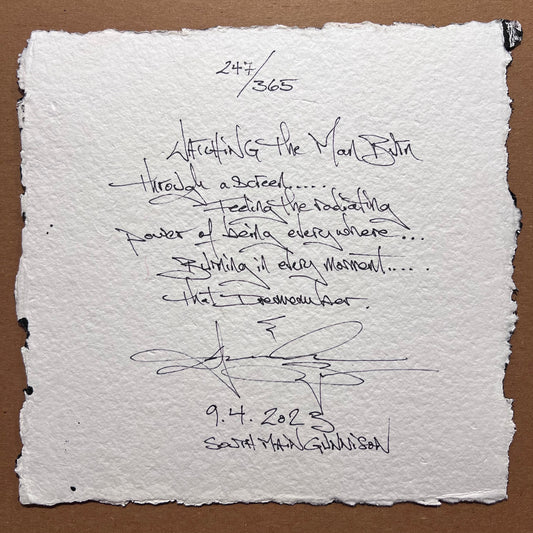 247/365
WATCHING the Man Burn
through a screen.....
Feeling the radiating
power of being everywhere...
Burning in every moment.....
that I remember.
&
9.4.2023
SOUTH MAIN GUNNISON